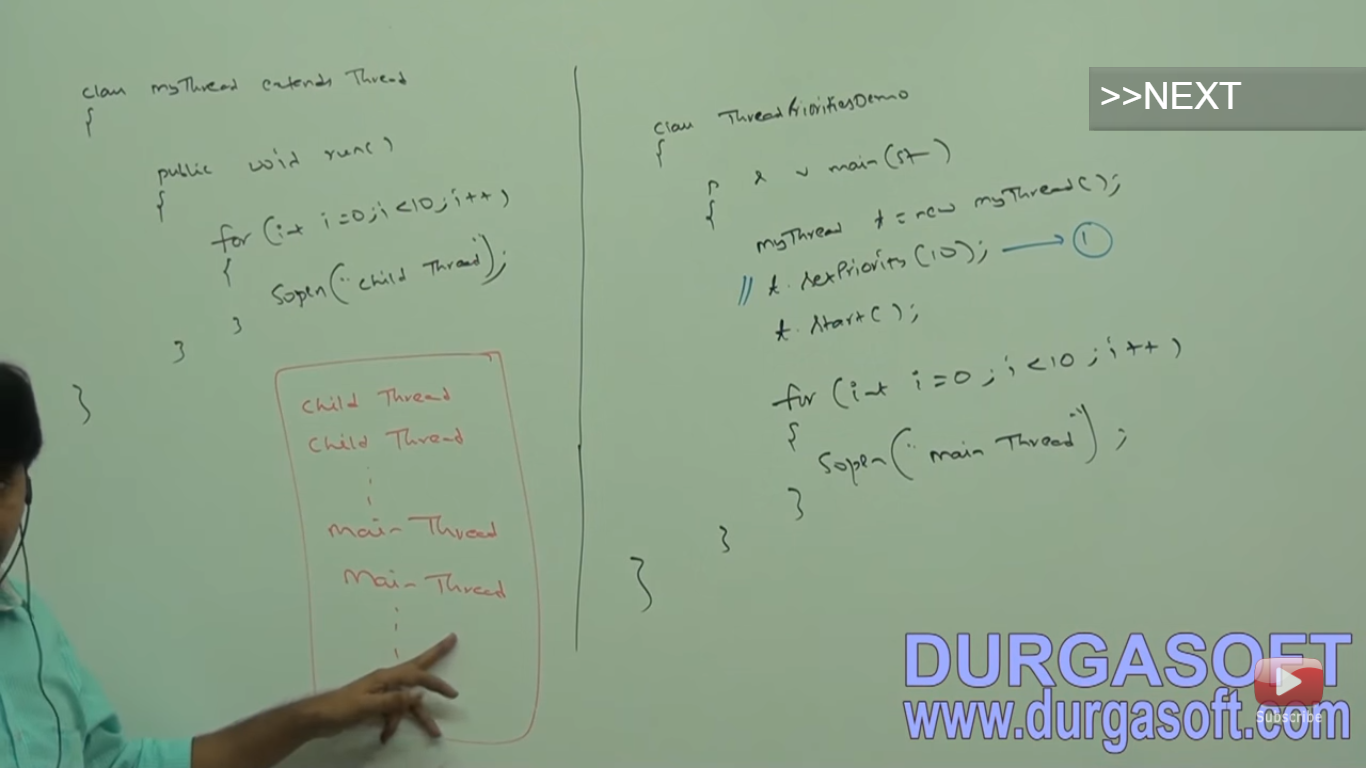 class myThread extends Thread
{
public void run()
{
for (int i=0; i<10; i++)
{
Sopln("child Thread");
}
}
}
child Thread
child Thread
main Thread
main Thread
>>NEXT
class ThreadPrioritiesDemo
{
p s v main(st—)
{
myThread t = new myThread();
// t.setPriority(10); → 1
t.start();
for (int i=0; i<10; i++)
{
Sopln("main Thread");
}
}
}
DURGASOFT
www.durgasoft.com
Subscribe